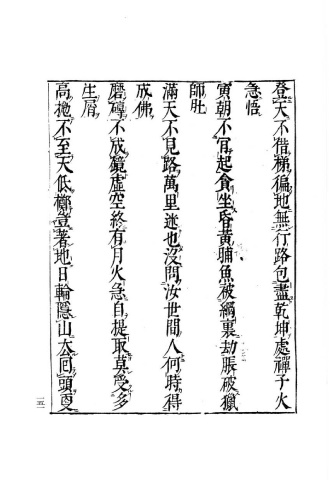 登天不借梯徧地無行路包盡乾坤處禪子火
急悟
寅朝不肎起貪坐昏黃晡魚被網裏劫脹破獵
師肚
滿天不見路萬里迷也没問汝世間人何時得
成佛
磨磚不成鏡虛空終有月火急自提取莫受多
生屑
高拋不至天低擲豈著地日輪隱山去囘頭更
一五一